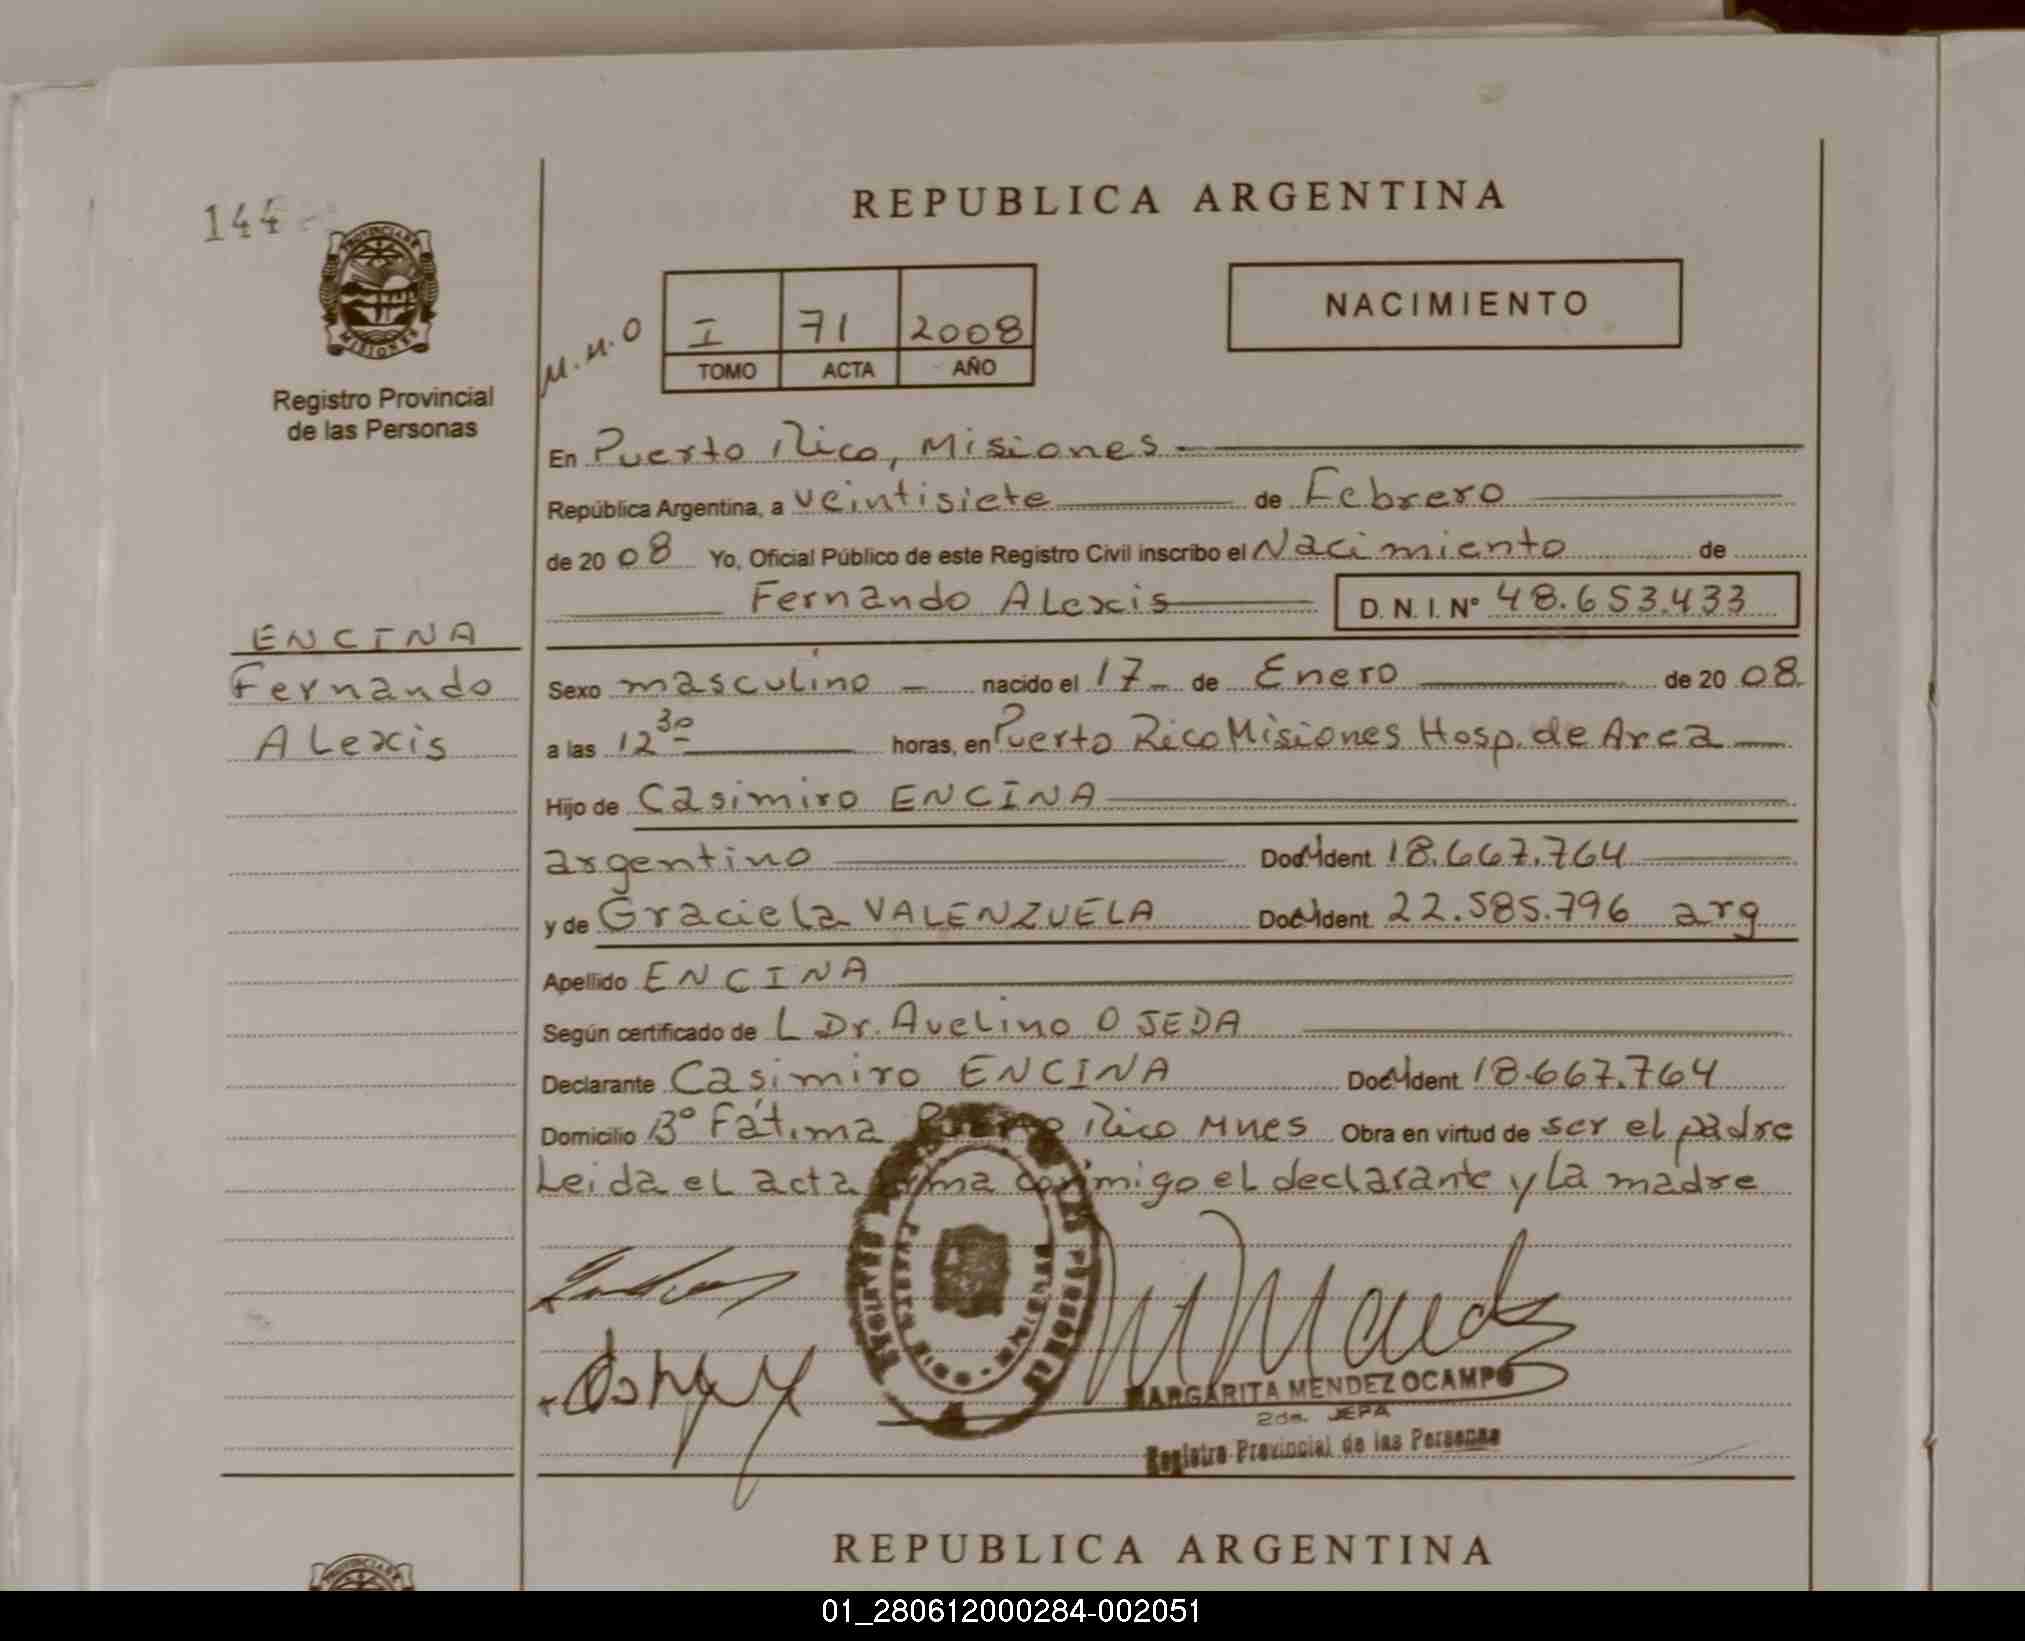 144
REPUBLICA ARGENTINA
PROVINCIA DE
MISIONES
Registro Provincial
de las Personas
M.M.O
I 71 2008
TOMO ACTA AÑO
NACIMIENTO
En Puerto Rico, Misiones
República Argentina, a veintisiete de Febrero
de 20 08 Yo, Oficial Público de este Registro Civil inscribo el Nacimiento de
Fernando Alexis D. N. I. Nº 48.653.433
ENCINA
Fernando
Alexis
Sexo masculino nacido el 17 de Enero de 20 08
a las 12 30 horas, en Puerto Rico Misiones Hosp. de Area
Hijo de Casimiro ENCINA
argentino Doc. Ident. 18.667.764
y de Graciela VALENZUELA Doc. Ident. 22.585.796 arg
Apellido ENCINA
Según certificado de L Dr. Avelino OJEDA
Declarante Casimiro ENCINA Doc. Ident. 18.667.764
Domicilio Bº Fátima Puerto Rico Mnes Obra en virtud de ser el padre
Leida el acta firma conmigo el declarante y la madre
MARGARITA MENDEZ OCAMPO
2da. JEFA
Registro Provincial de las Personas
REPUBLICA ARGENTINA
01_280612000284-002051